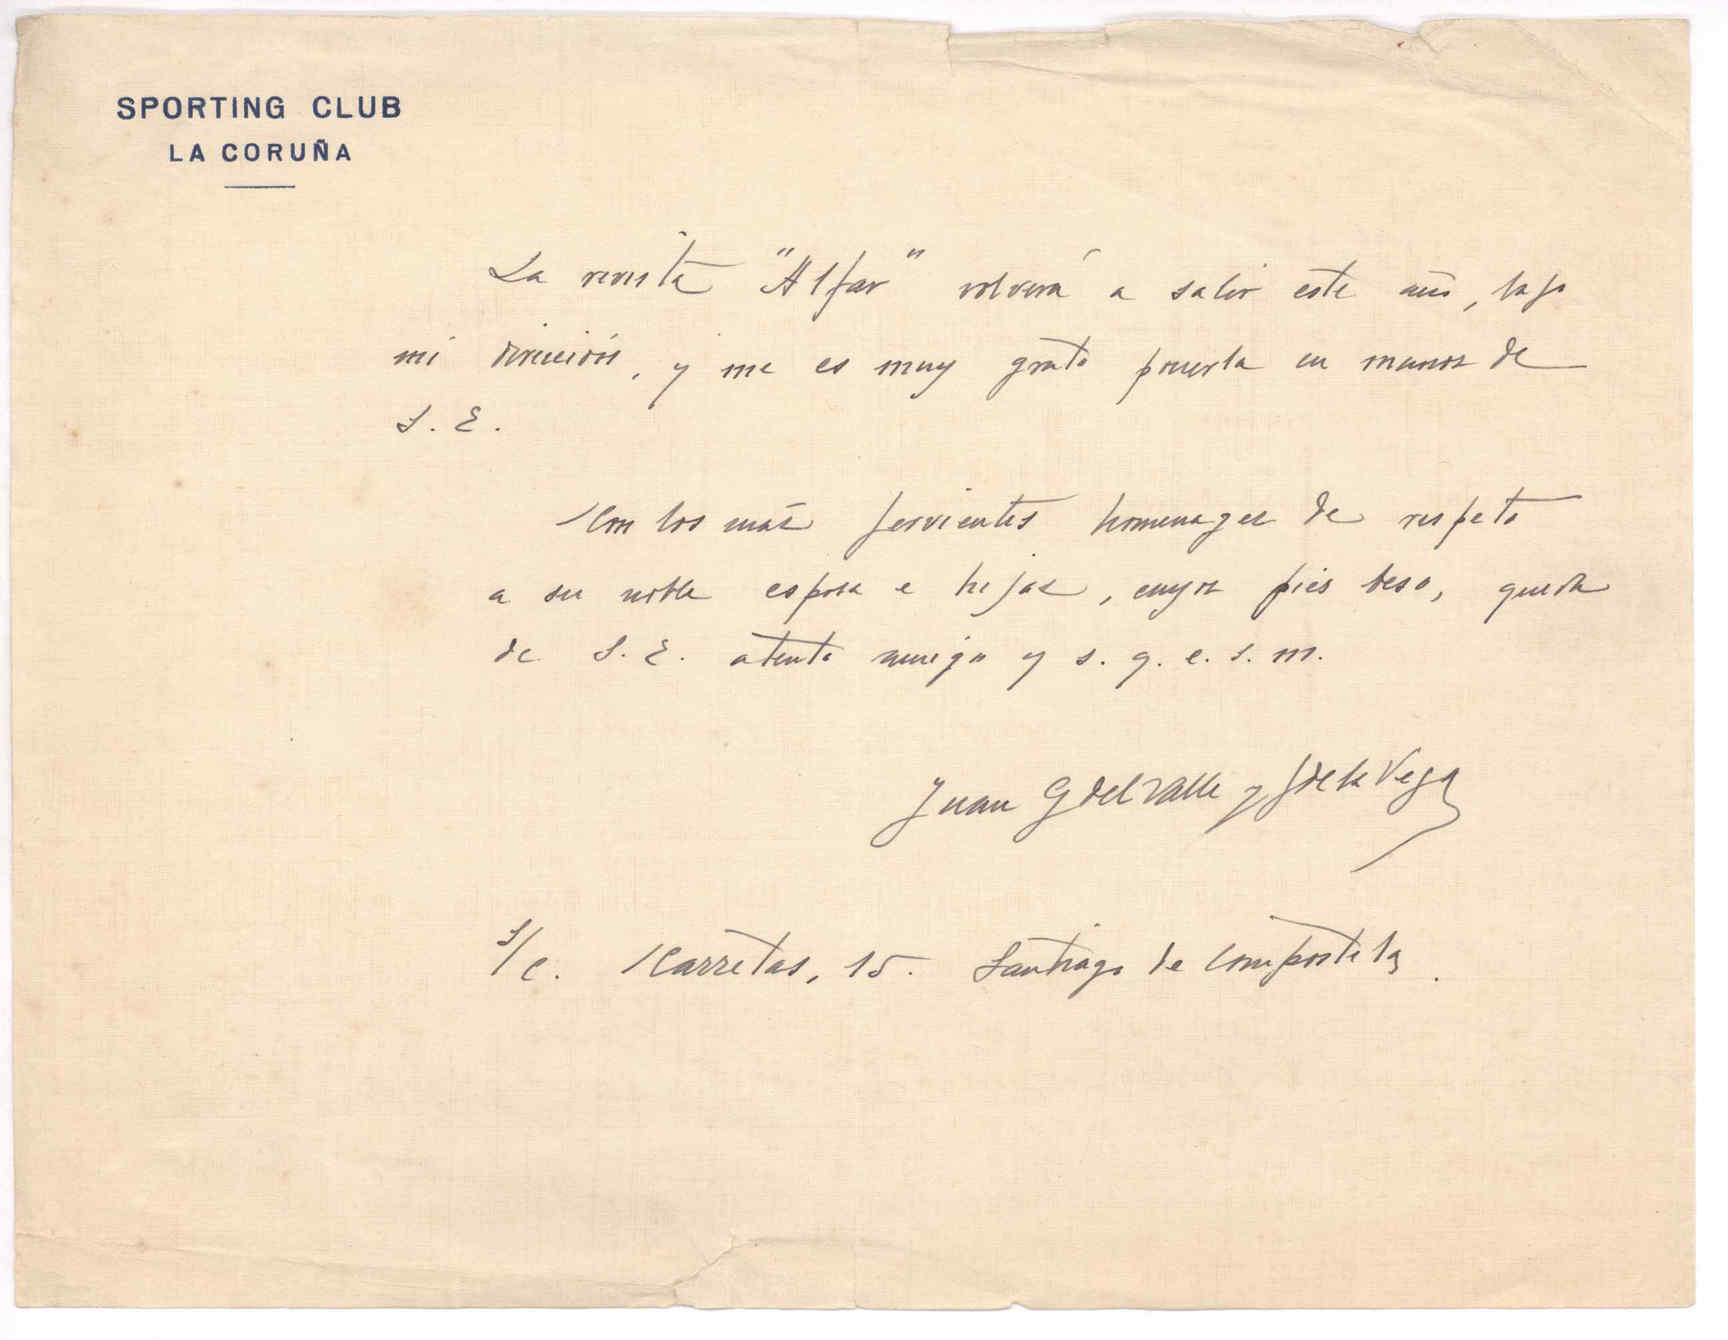 SPORTING CLUB
LA CORUÑA
La revista "Alfar" volverá a salir este año, bajo
mi dirección, y me es muy grato ponerla en manos de
S. E.
Con los más fervientes homenages de respeto
a su noble esposa e hijas, cuyos pies beso, queda
de S. E. atento amigo y s. q. e. s. m.
Juan G del Valle y J de la Vega
S/C. Carretas, 15. Santiago de Compostela.